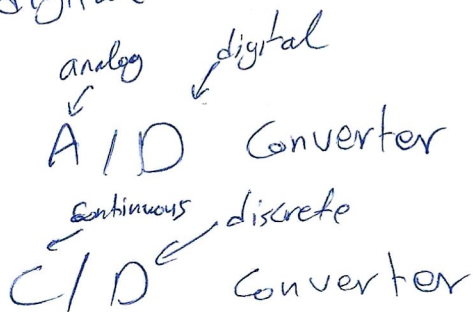 analog digital
A/D Converter
continuous discrete
C/D Converter